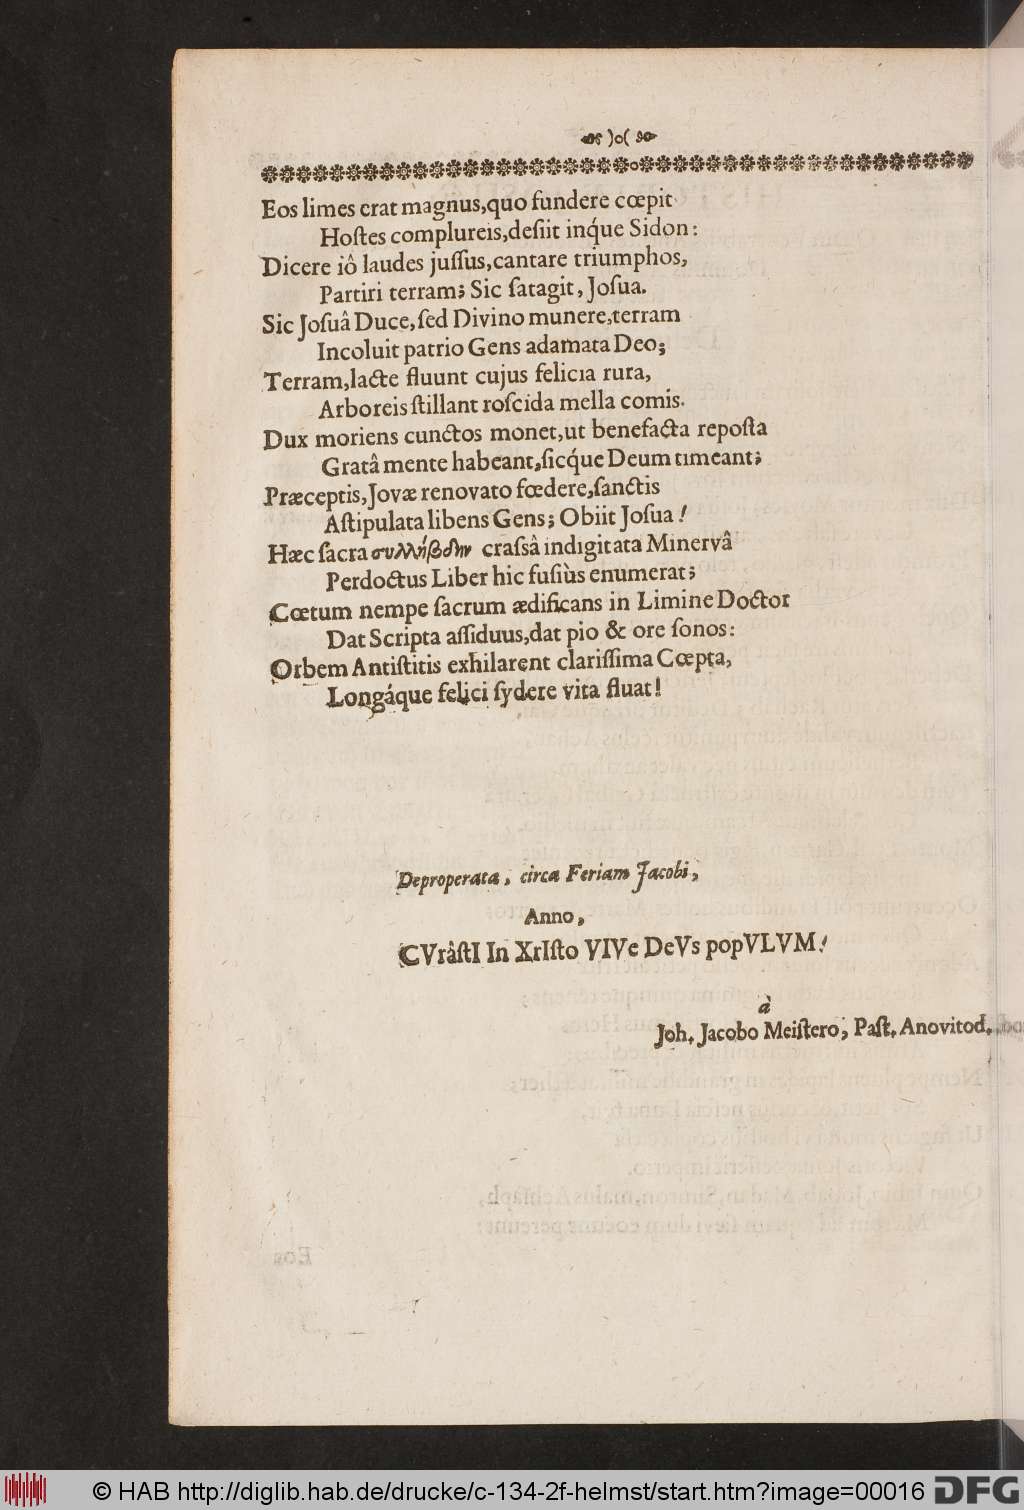 )o(
Eos limes erat magnus, quo fundere cœpit
Hoſtes complureis, deſiit inq́ue Sidon:
Dicere iô laudes juſſus, cantare triumphos,
Partiri terram; Sic ſatagit, Joſua.
Sic Joſuâ Duce, ſed Divino munere, terram
Incoluit patrio Gens adamata Deo;
Terram, lacte fluunt cujus felicia rura,
Arboreis ſtillant roſcida mella comis.
Dux moriens cunctos monet, ut benefacta repoſta
Gratâ mente habeant, ſicq́ue Deum timeant;
Præceptis, Jovæ renovato fœdere, ſanctis
Aſtipulata libens Gens; Obiit Joſua!
Hæc ſacra συλλήβδην craſſâ indigitata Minervâ
Perdoctus Liber hic fuſiùs enumerat;
Cœtum nempe ſacrum ædificans in Limine Doctor
Dat Scripta aſſiduus, dat pio & ore ſonos:
Orbem Antiſtitis exhilarent clariſſima Cœpta,
Longáque felici ſydere vita fluat!
Deproperata, circa Feriam Jacobi,
Anno,
CVràſtI In XrIſto VIVe DeVs popVLVM!
à
Joh. Jacobo Meiſtero, Paſt. Anovitod.
© HAB http://diglib.hab.de/drucke/c-134-2f-helmst/start.htm?image=00016
DFG